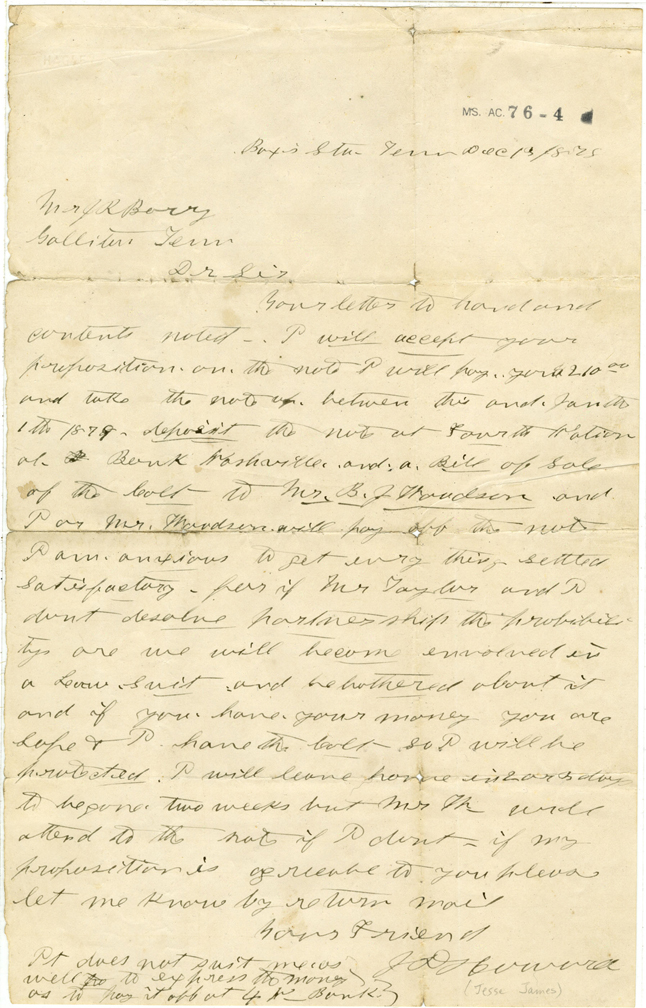 MS. AC. 76-4
Box's Sta- Tenn Dec 1878
Mr J R Berry
Gallitin Tenn
Dr Sir
Your letter to hand and
contents noted -. I will accept your
proposition. on. the note I will pay. you 210 00
and take the note up. between this and. Jan the
1th 1879 - deposit the note at Fourth Nation
al Bank Nashville. and. a. Bill of Sale
of the bolt to Mr. B. J Woodson and
I or Mr. Woodson will pay off the note
I am. anxious to get every thing settled
satisfactory - fer if Mr Taylor and I
dont desolve partnership the probibili
tys are we will become envolved in
a Law. Suit. and be bothered about it
and if you. have. your money you are
safe & I. have the bolt so I will be
protected. I will leave home in 2 or 3 days
to be gone. two weeks but Mr Wo will
attend to the note if I dont - if my
proposition is agreeable to. you pleas
let me know by return mail
Your Friend
J D Howard
(Jesse James)
It does not suit me as
well to express the money
as to pay it off at 4th Bank.